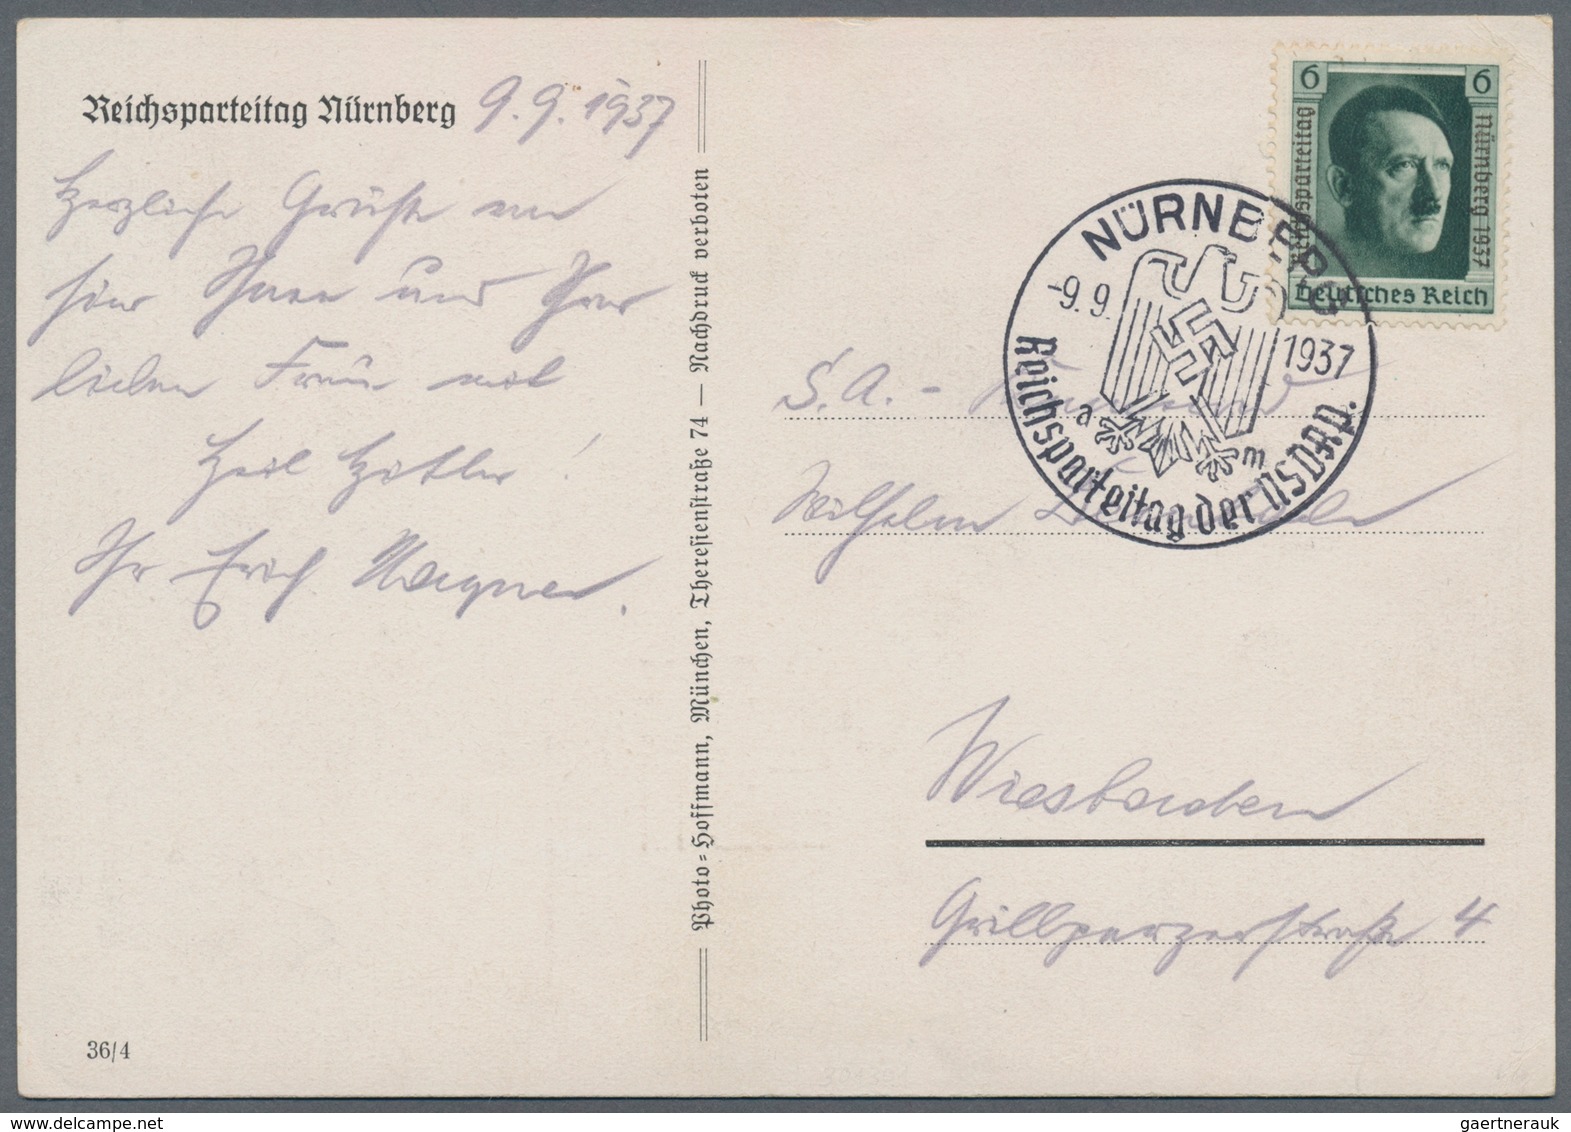 Reichsparteitag Nürnberg 9.9.1937
Herzliche Grüße an
Ihnen und Ihrer
lieben Frau mit
Heil Hitler!
Ihr Erich Wagner.
36/4
Photo-Hoffmann, München, Theresienstraße 74 — Nachdruck verboten
6 6
Reichsparteitag
Nürnberg 1937
Deutsches Reich
NÜRNBERG
-9.9. 1937
a m
Reichsparteitag der NSDAP.
S.A. -
Wilhelm
Wiesbaden
Grillparzerstraße 4
gaertnerauk @ delcampe.net